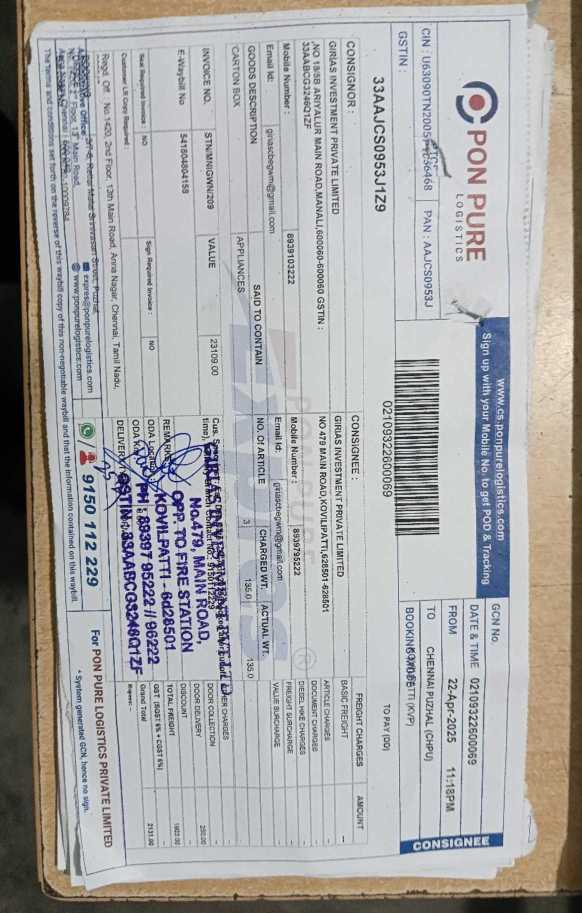 PON PURE
LOGISTICS
www.cs.ponpurelogistics.com
Sign up with your Mobile No. to get POD & Tracking
GCN No.
CIN : PAN : AAJCS0953J
GSTIN :
33AAJCS0953J1Z9
02109322600069
DATE & TIME 02109322600069
22-Apr-2025 11:18PM
FROM CHENNAI PUZHAL (CHPU)
TO (KVP)
BOOKING
CONSIGNEE
TO PAY (DD)
CONSIGNOR :
GIRIAS INVESTMENT PRIVATE LIMITED
,NO 18/5B ARIYALUR MAIN ROAD,MANALI,600060-600060 GSTIN :
33AABCG3248Q1ZF
Mobile Number : 8939103222
Email Id: giriascbegwm@gmail.com
CONSIGNEE :
GIRIAS INVESTMENT PRIVATE LIMITED
NO 479 MAIN ROAD,KOVILIPATTI,628501-628501
Mobile Number : 8939795222
Email Id: giriascbegwm@gmail.com
GOODS DESCRIPTION SAID TO CONTAIN NO. Of ARTICLE CHARGED WT. ACTUAL WT.
CARTON BOX APPLIANCES 3 135.0 135.0
INVOICE NO. STN/MNI/GWN/209 VALUE 23109.00
E-Waybill No 541604804158
Seal Required Invoice : NO Sign Required Invoice : NO
Customer LR Copy Required :
FREIGHT CHARGES AMOUNT
BASIC FREIGHT --
ARTICLE CHARGES --
DOCUMENT CHARGES --
DIESEL HIKE CHARGES --
FREIGHT SURCHARGE --
VALUE SURCHARGE --
CHARGES --
DOOR COLLECTION --
DOOR DELIVERY 250.00
DISCOUNT --
TOTAL FREIGHT 1903.00
GST (SGST 6% + CGST 6%)
Grand Total 2131.00
REMARKS
DELIVERY
No.479, MAIN ROAD,
OPP. TO FIRE STATION
KOVILPATTI - 6d28501
PH: 89397 95222 / 96222
GSTIN: 33AABCG3248Q1ZF
Regd. Off. : No.1420, 2nd Floor, 13th Main Road, Anna Nagar, Chennai, Tamil Nadu,
www.ponpurelogistics.com
9150 112 229
For PON PURE LOGISTICS PRIVATE LIMITED
* System generated GCN, hence no sign.
The terms and conditions set forth on the reverse of this waybill copy of this non-negotiable waybill and that the information contained on this waybill.